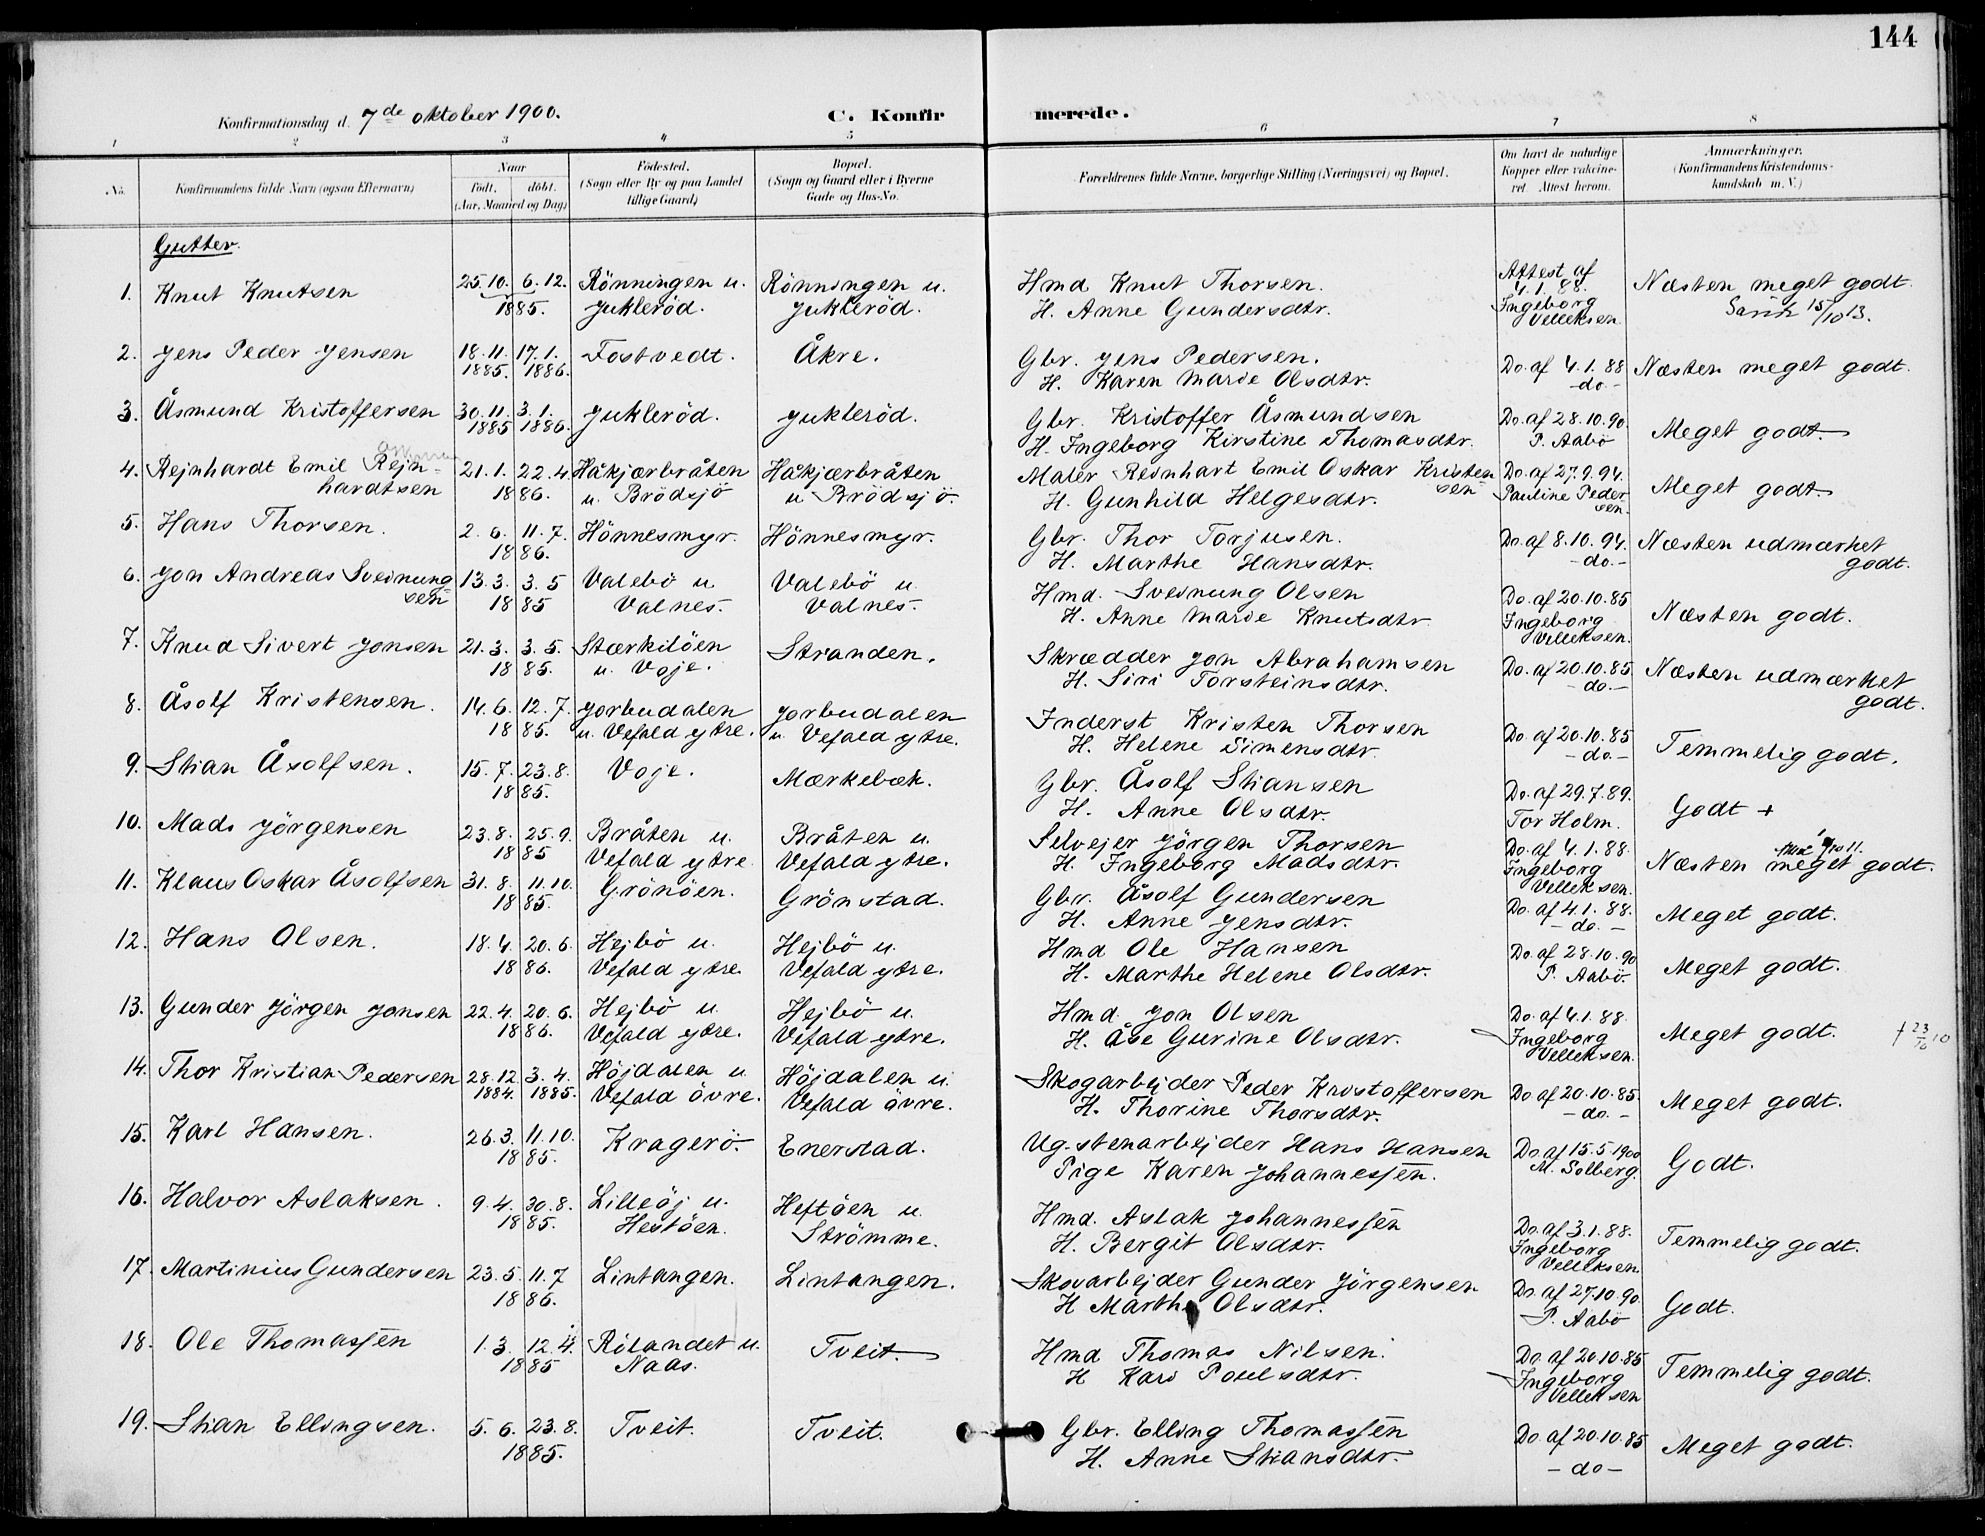 144
Konfirmationsdag d. 7de oktober 1900.
C. Konfirmerede.
1 2 3 4 5 6 7 8
No.
Konfirmandens fulde Navn (ogsaa Efternavn)
Naar
født. døbt.
(Aar, Maaned og Dag)
Fødested.
(Sogn eller By og paa Landet
tillige Gaard)
Bopæl.
(Sogn og Gaard eller i Byerne
Gade og Hus-No.
Forældrenes fulde Navne, borgerlige Stilling (Næringsvei) og Bopæl.
Om havt de naturlige
Kopper eller vakcine-
ret. Attest herom.
Anmærkninger.
(Konfirmandens Kristendoms-
kundskab m. V.)
Gutter.
1. Knut Knutsen 25.10. 6.12. Rönningen u. Rönningen u. Hmd Knut Thorsen. Attest af Næsten meget godt.
1885. Jukleröd. Jukleröd. H. Anne Gundersdtr. 4.1.88. 15/10 13.
Ingeborg
Velleksen
2. Jens Peder Jensen 18.11. 17.1. Fostvedt. Åkre. Gbr. Jens Pedersen. Do. af 4.1.88 Næsten meget godt.
1885. 1886. H. Karen Marie Olsdtr. -do.-
3. Åsmund Kristoffersen 30.11. 3.1. Jukleröd. Jukleröd. Gbr. Kristoffer Åsmundsen Do. af 28.10.90 Meget godt.
1885 1886. H. Ingeborg Kirstine Thomasdtr. P. Aabö
4. Rejnhardt Emil Rejn- 21.1. 22.4 Håkjærbråten Håkjærbråten Maler Reinhart Emil Oskar Kristen Do. af 27.9.94. Meget godt.
hardtsen 1886. u. Brödsjö u Brödsjö. H. Gunhild Helgesdtr. sen Pauline Peder
sen.
5. Hans Thorsen. 2.6. 11.7. Hönnesmyr. Hönnesmyr. Gbr. Thor Torjusen. Do. af 8.10.94. Næsten udmærket
1886. H. Marthe Hansdtr. -do.- godt.
6. Jon Andreas Sveinung 13.3. 3.5 Valebö u. Valebö u Hmd. Sveinung Olsen Do. af 20.10.85 Næsten godt.
sen 1885 Valnes. Valnes. H. Anne Marie Knutsdtr Ingeborg
Velleksen.
7. Knud Sivert Jonsen 21.3. 3.5. Stærkilöen Stranden. Skrædder Jon Abrahamsen Do. af 20.10.85. Næsten udmærket
1885. u. Voje. H. Siri Torsteinsdtr. -do.- godt.
8. Åsolf Kristensen. 14.6. 12.7. Jorbudalen Jorbudalen Inderst Kristen Thorsen Do. af 20.10.85 Temmelig godt.
1885. u. Vefald ytre. u. Vefald ytre. H. Helene Simensdtr. -do.-
9. Stian Åsolfsen. 15.7. 23.8. Voje. Mærkebæk. Gbr. Åsolf Stiansen Do. af 29.7.89. Godt +
1885. H. Anne Olsdtr. Tor Holm.
10. Mads Jörgensen 23.8. 25.9. Bråten u. Bråten u. Selvejer Jörgen Thorsen Do. af 4.1.88. Næsten meget godt.
1885 Vefald ytre Vefald ytre. H. Ingeborg Madsdtr. Ingeborg
Velleksen.
11. Klaus Oskar Åsolfsen 31.8. 11.10. Grönöen. Grönstad. Gbr. Åsolf Gundersen Do. af 4.1.88. Meget godt.
1885. H. Anne Jensdtr. -do.-
12. Hans Olsen. 18.4. 20.6. Hejbö u. Hejbö u. Hmd Ole Hansen Do. af 28.10.90 Meget godt.
1886. Vefald ytre. Vefald ytre. H. Marthe Helene Olsdtr. P. Aabö.
13. Gunder Jörgen Jonsen 22.4. 20.6. Hejbö u. Hejbö u. Hmd Jon Olsen Do. af 4.1.88. Meget godt. † 23/10 10
1886. Vefald ytre. Vefald ytre. H. Åse Gurine Olsdtr. Ingeborg
Velleksen.
14. Thor Kristian Pedersen 28.12. 3.4. Höjdalen u Höjdalen u. Skogarbejder Peder Kristoffersen Do af 20.10.85. Meget godt.
1884. 1885. Vefald övre. Vefald övre. H. Thorine Thorsdtr. -do.-
15. Karl Hansen. 26.3. 11.10. Kragerö. Enerstad. Ug. stenarbejder Hans Hansen Do. af 15.5.1900 Godt.
1885. Pige Karen Johannessen. M. Solberg.
16. Halvor Aslaksen. 9.4. 30.8. Lilleöj u. Heftöen u. Hmd. Aslak Johannessen Do. af 3.1.88. Temmelig godt.
1885. Hestöen. Strömme. H. Bergit Olsdtr. Ingeborg
Velleksen
17. Martinius Gundersen 23.5. 11.7 Lintangen. Lintangen. Skovarbejder Gunder Jörgensen Do. af 27.10.90. Godt.
1886. H Marthe Olsdtr. P. Aabö
18. Ole Thomassen 1.3. 12.4. Rölandet u. Tveit. Hmd Thomas Nilsen. Do. af 20.10.85 Temmelig godt.
1885 Naas. H Kari Poulsdtr. Ingeborg
Velleksen
19. Stian Ellingsen. 5.6. 23.8. Tveit. Tveit. Gbr. Elling Thomassen Do af 20.10.85 Meget godt.
1885. H. Anne Stiansdtr. -do-